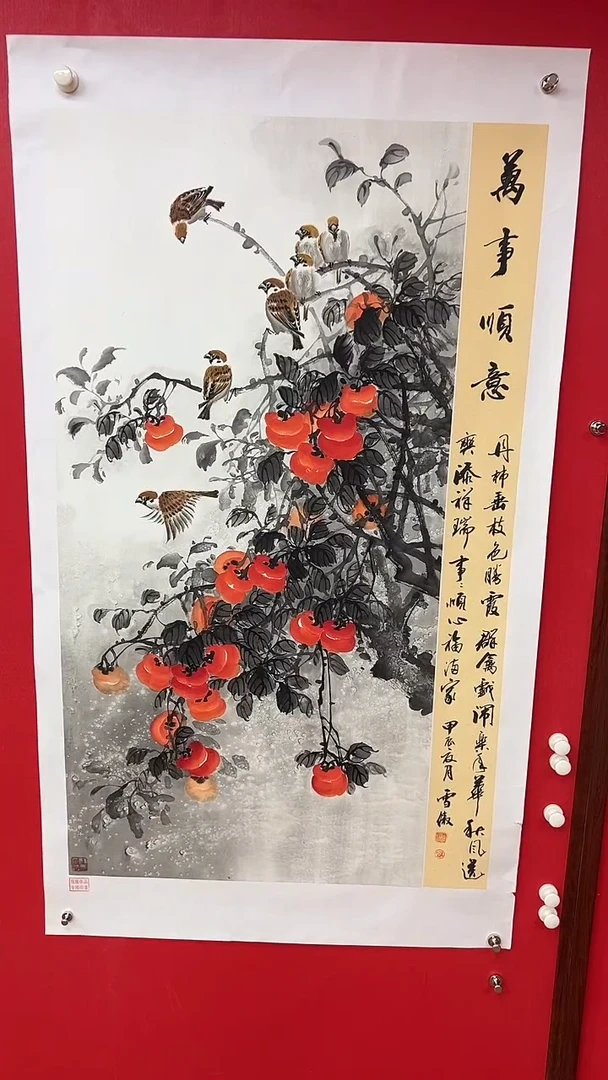 萬事順意
丹柿垂枝色勝霞群禽戲鬧樂年華秋風送
爽添祥瑞事々順心福滿家 甲辰夏月 雪